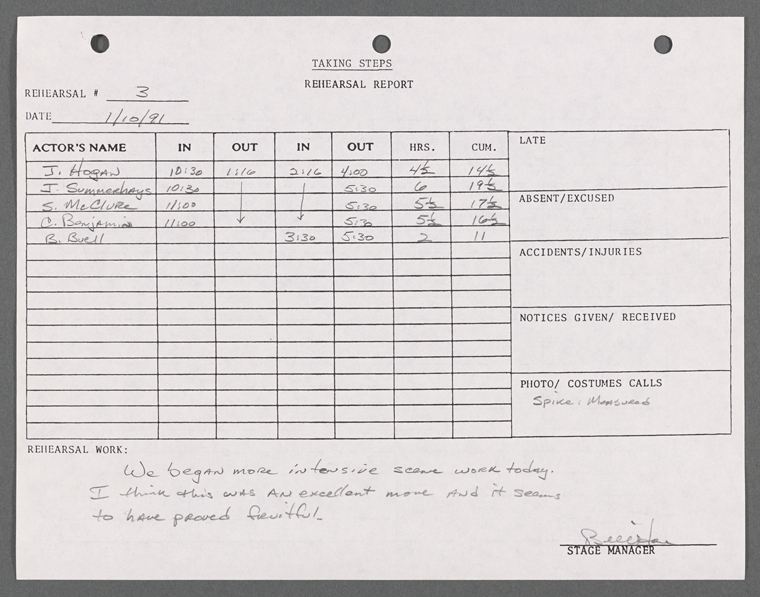 TAKING STEPS
REHEARSAL REPORT
REHEARSAL # 3
DATE 1/10/91
ACTOR'S NAME IN OUT IN OUT HRS. CUM. LATE
J. HOGAN 10:30 1:16 2:16 4:00 4½ 14½
J. Summerhays 10:30 5:30 6 19½
S. McClure 11:00 5:30 5½ 17½
C. Benjamin 11:00 5:30 5½ 16½
B. Buell 3:30 5:30 2 11
ABSENT/EXCUSED
ACCIDENTS/INJURIES
NOTICES GIVEN/ RECEIVED
PHOTO/ COSTUMES CALLS
Spike: Measured
REHEARSAL WORK:
We began more intensive scene work today.
I think this was an excellent move and it seems
to have proved fruitful.
STAGE MANAGER